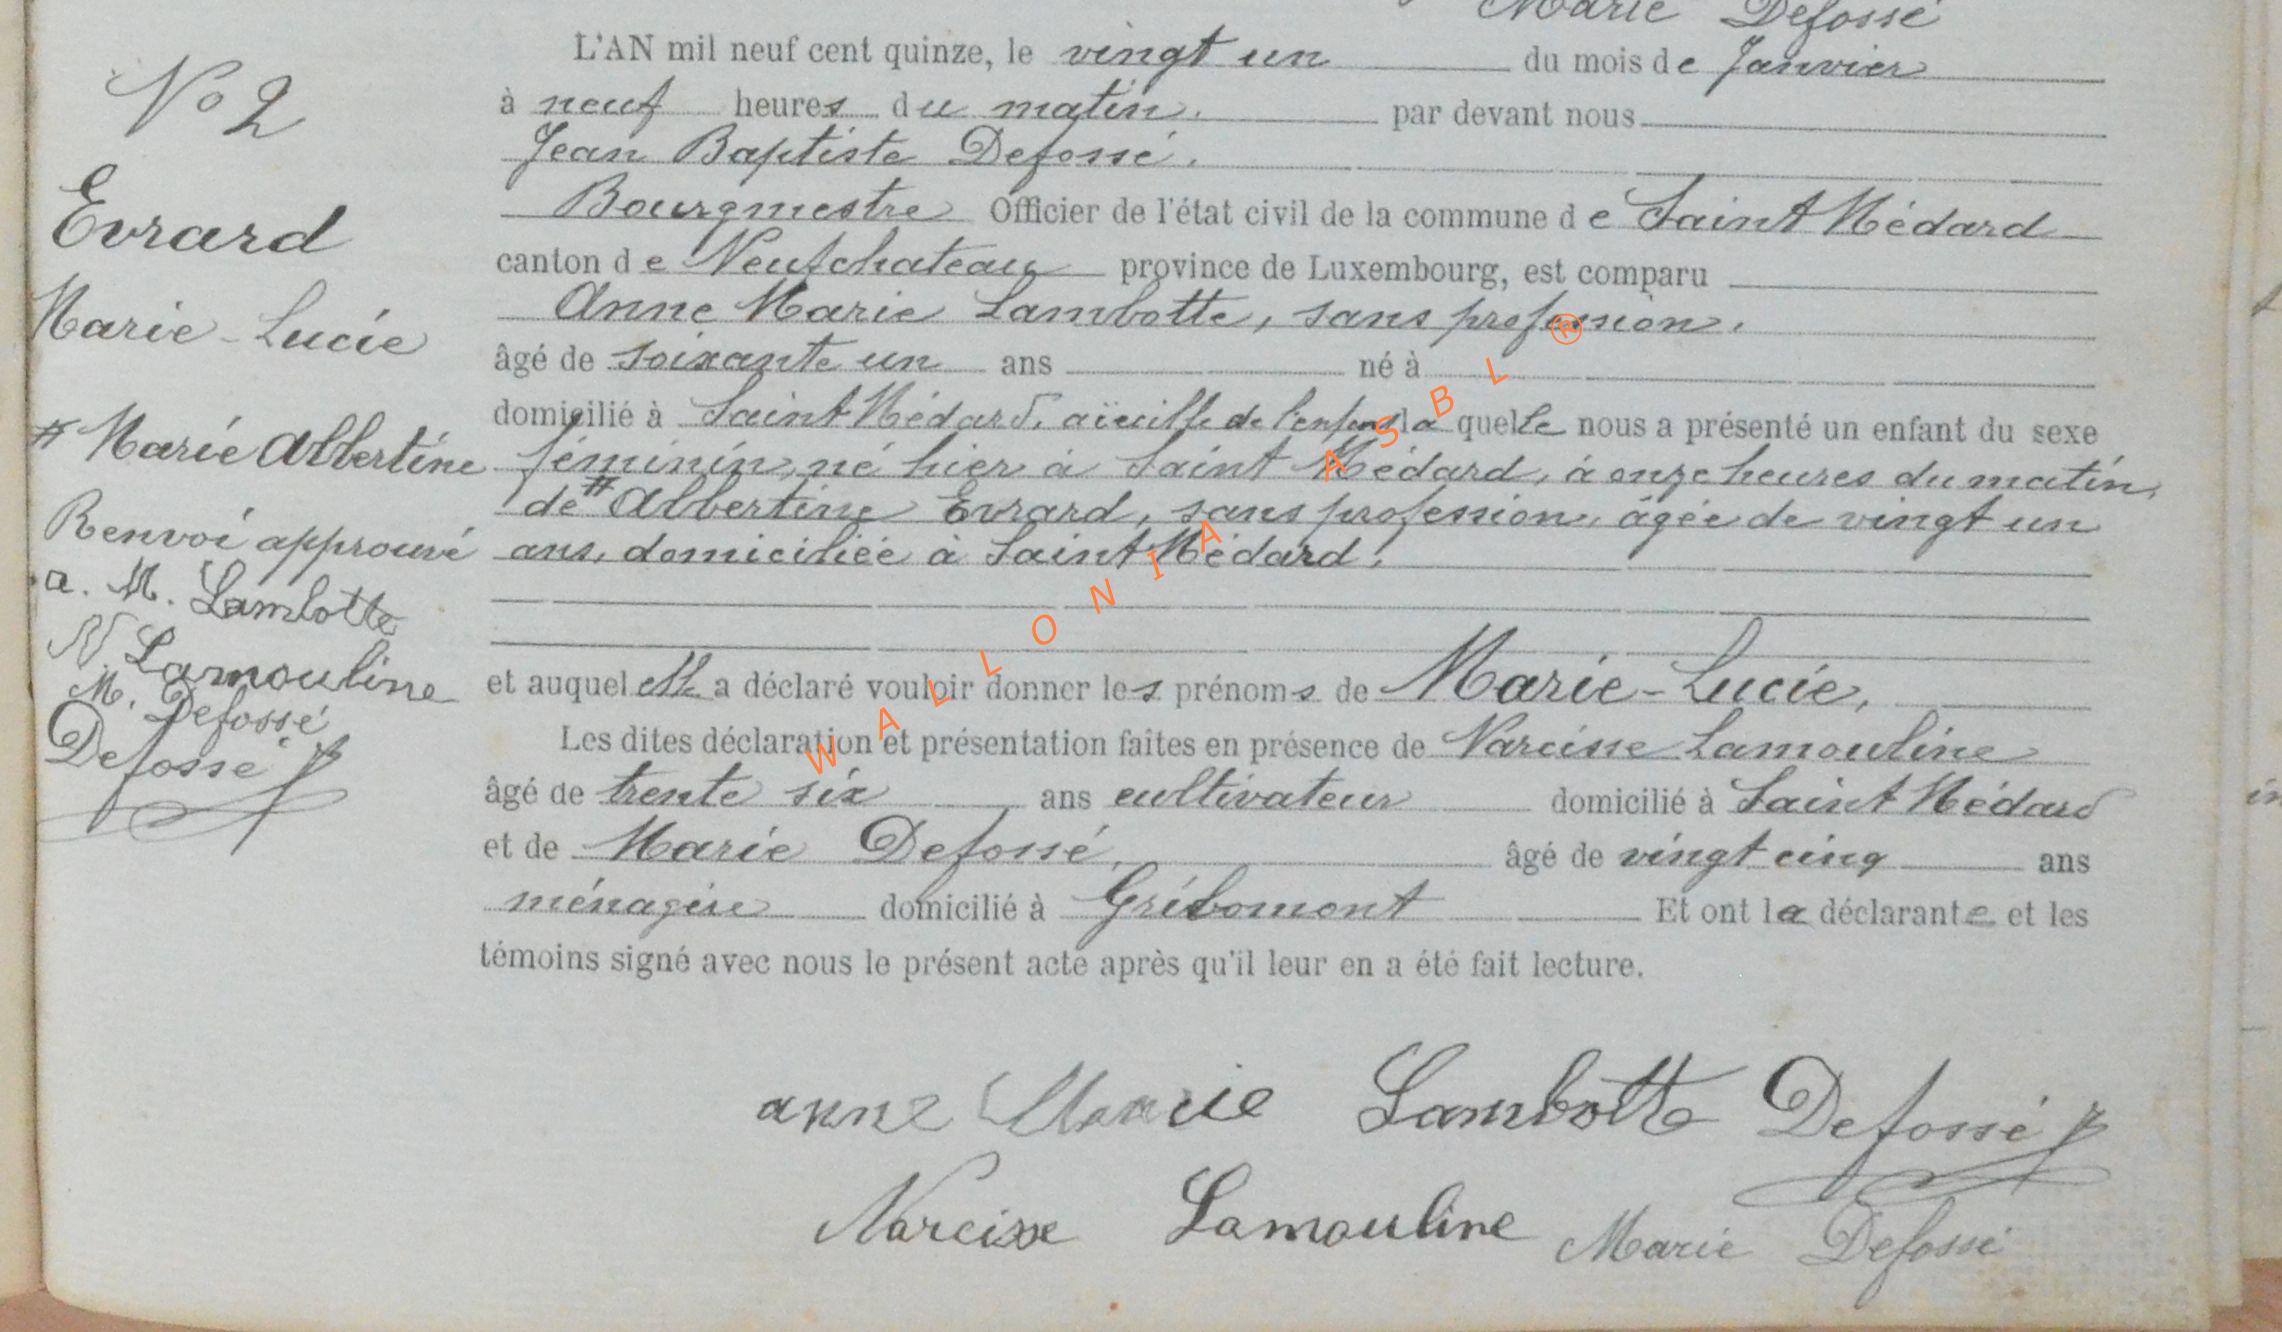 Marie Defossé
N° 2
Evrard
Marie-Lucie
# Marie Albertine
Renvoi approuvé
a. M. Lambotte
N Lamouline
M. Defossé
Defossé
L'AN mil neuf cent quinze, le vingt un du mois de Janvier
à neuf heures du matin. par devant nous
Jean Baptiste Defossé.
Bourgmestre Officier de l'état civil de la commune de Saint Médard
canton de Neufchateau province de Luxembourg, est comparu
Anne Marie Lambotte, sans profession.
âgé de soixante un ans né à
domicilié à Saint Médard, aïeille de l'enfant laquelle nous a présenté un enfant du sexe
féminin, né hier à Saint Médard, à onze heures du matin,
de # Albertine Evrard, sans profession, âgée de vingt un
ans, domiciliée à Saint Médard.
et auquel elle a déclaré vouloir donner les prénoms de Marie-Lucie,
Les dites déclaration et présentation faites en présence de Narcisse Lamouline
âgé de trente six ans cultivateur domicilié à Saint Médard
et de Marie Defossé, âgé de vingt cinq ans
ménagère domicilié à Gribomont Et ont la déclarante et les
témoins signé avec nous le présent acte après qu'il leur en a été fait lecture.
anne Marie Lambotte Defossé
Narcisse Lamouline Marie Defossé
WALLONIA ASBL ®